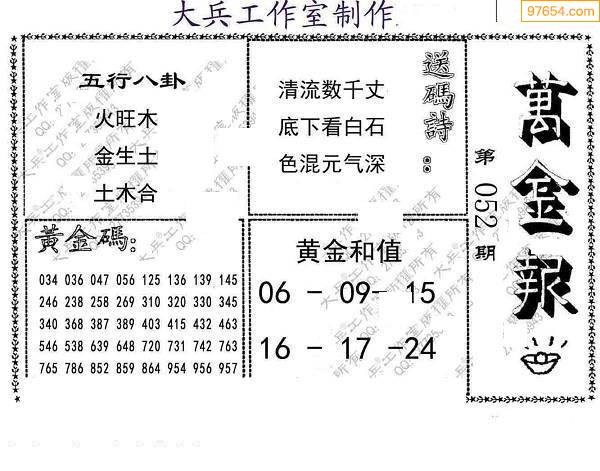 大兵工作室制作
97654.com
五行八卦
火旺木
金生土
土木合
送碼詩:
清流数千丈
底下看白石
色混元气深
萬金报
第052期
黃金碼:
034 036 047 056 125 136 139 145
246 238 258 269 310 320 330 345
340 368 387 389 403 415 432 463
546 538 639 648 720 731 742 763
765 786 852 859 864 954 956 957
黄金和值
06 - 09- 15
16 - 17 -24